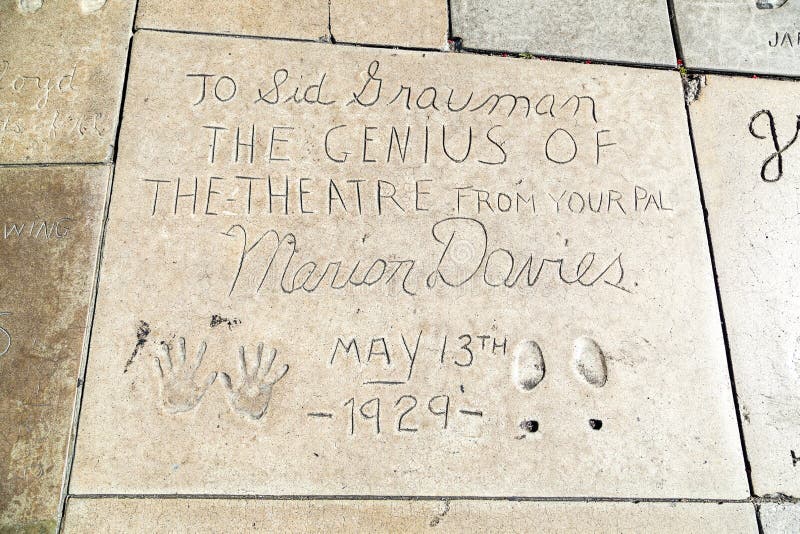 To Sid Grauman
THE GENIUS OF
THE-THEATRE FROM YOUR PAL
Marion Davies.
MAY 13TH
-1929-
loyd
WING
JA